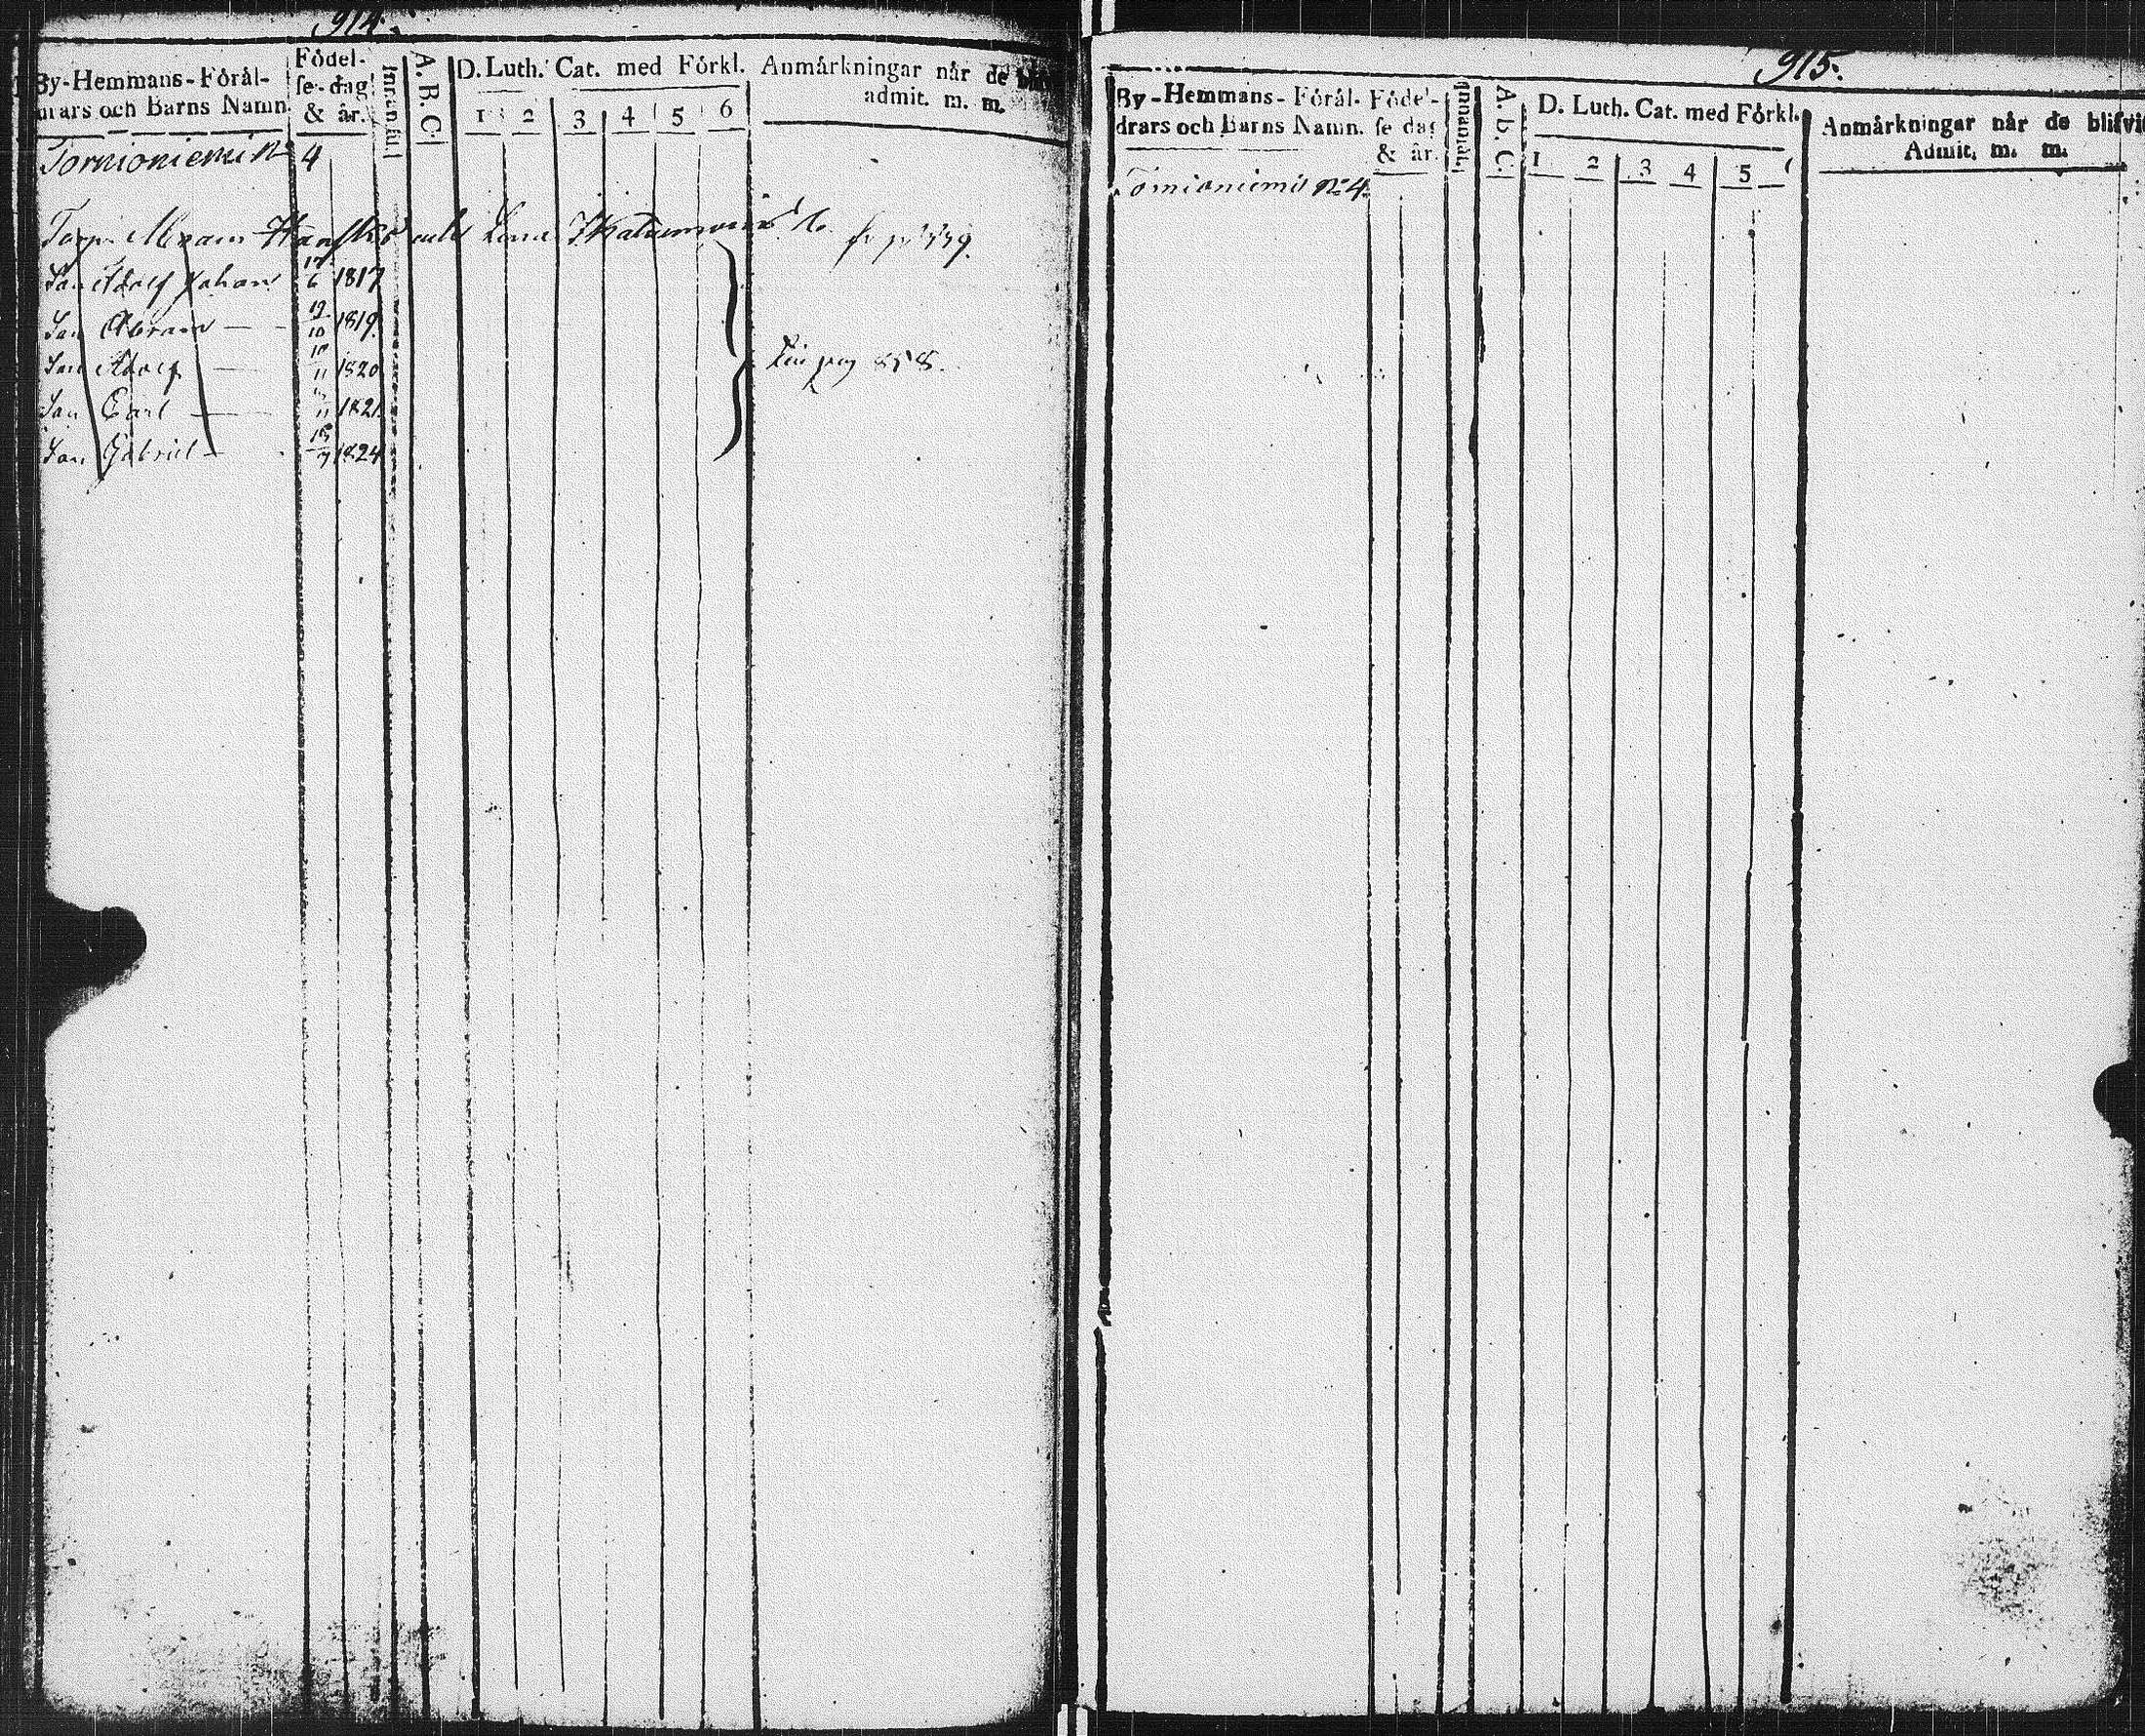 914.
By-Hemmans-Förål-
drars och Barns Namn.
Födel-
se-dag
& år.
Innanlä
A.B.C.
D. Luth. Cat. med Förkl.
1 2 3 4 5 6
Anmärkningar når de
admit. m. m.
Tornioniemi No 4
Torp. Abram och Lena
fr p.
Son Adolf Johan 6 1817
Son Abram — 12/10 1819
Son Adolf — 11 1820
Lin pag 858.
Son Carl — 11 1821
Son Gabriel — 7 1824
915.
By-Hemmans-Förål-
drars och Barns Namn.
Födel-
se dag
& år.
Innanlät.
A.b.C.
D. Luth. Cat. med Förkl.
1 2 3 4 5
Anmärkningar når de blifvit
Admit. m. m.
Tornioniemi No 4.